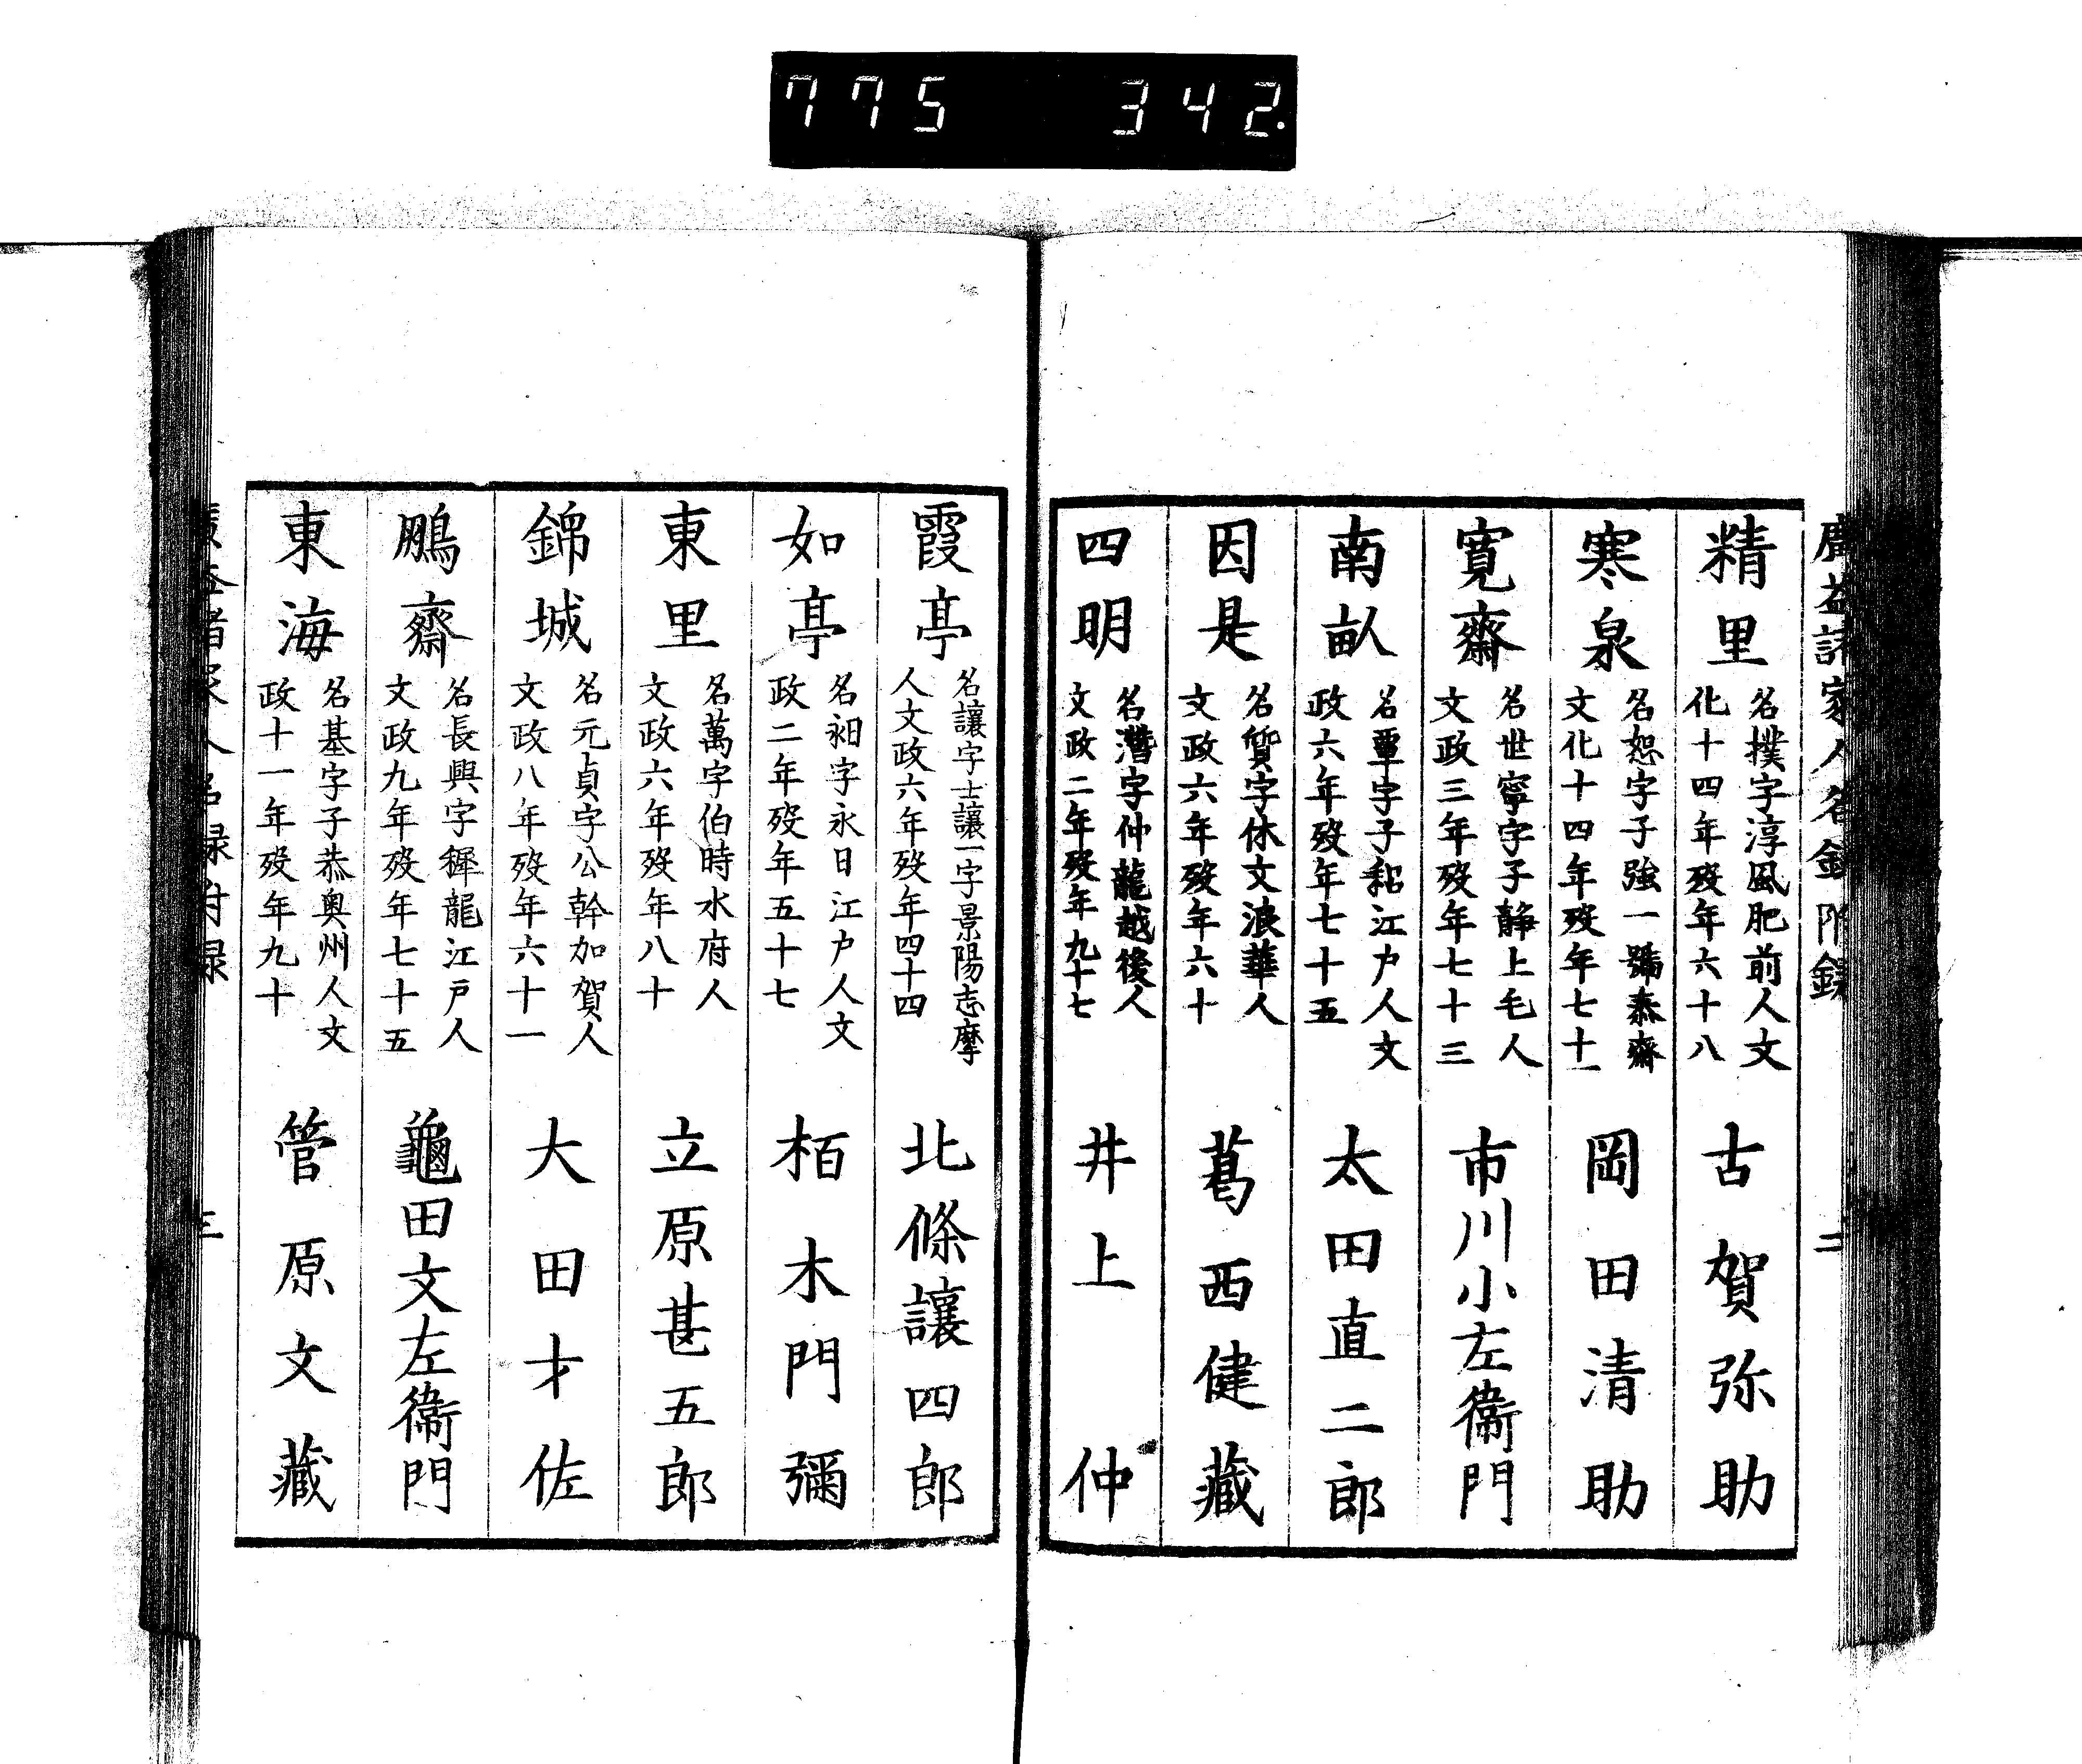 775 342.
廣益諸家人名録附録 二
精里 名撲字淳風肥前人文
化十四年歿年六十八 古賀弥助
寒泉 名恕字子強一號泰齋
文化十四年歿年七十一 岡田清助
寛齋 名世寧字子靜上毛人
文政三年歿年七十三 市川小左衞門
南畝 名覃字子耜江戸人文
政六年歿年七十五 太田直二郎
因是 名質字休文浪華人
文政六年歿年六十 葛西健藏
四明 名潛字仲龍越後人
文政二年歿年九十七 井上仲
霞亭 名讓字士讓一字景陽志摩
人文政六年歿年四十四 北條讓四郎
如亭 名昶字永日江戸人文
政二年歿年五十七 栢木門彌
東里 名萬字伯時水府人
文政六年歿年八十 立原甚五郎
錦城 名元貞字公幹加賀人
文政八年歿年六十一 大田才佐
鵬齋 名長興字穉龍江戸人
文政九年歿年七十五 龜田文左衞門
東海 名基字子恭奥州人文
政十一年歿年九十 管原文藏
三